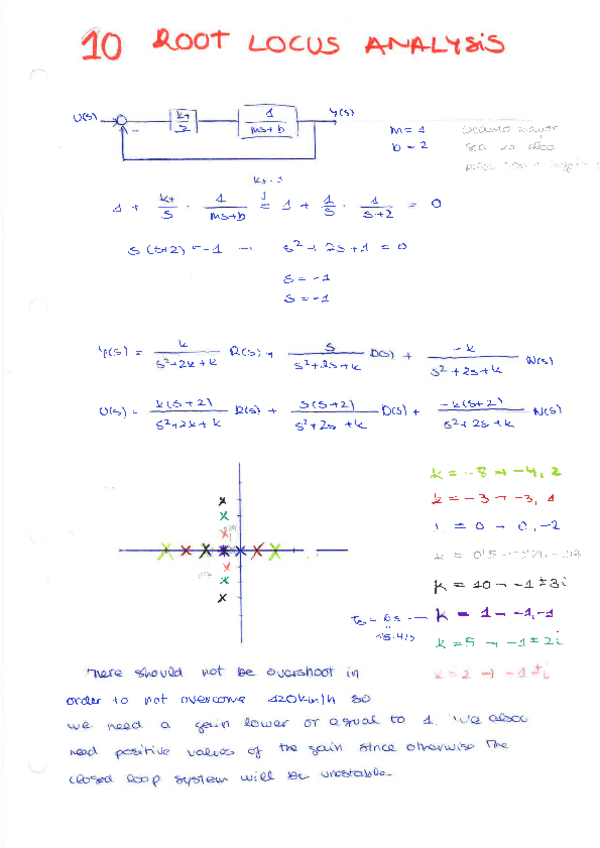 10 ROOT LOCUS ANALYSIS
U(s) - k+/s 1/(ms+b) Y(s)
m = 1
b = 2
1 + k+/s · 1/(ms+b) = 1 + 1/s · 1/(s+2) = 0
s(s+2) = -1 → s² + 2s + 1 = 0
s = -1
s = -1
Y(s) = k/(s²+2k+k) R(s) + s/(s²+2s+k) D(s) + -k/(s²+2s+k) N(s)
U(s) = k(s+2)/(s²+2k+k) R(s) + s(s+2)/(s²+2s+k) D(s) + -k(s+2)/(s²+2s+k) N(s)
k = -8 → -4, 2
k = -3 → -3, 1
k = 0 → 0, -2
k = 10 → -1±3i
k = 1 → -1, -1
k = 5 → -1±2i
k = 2 → -1±i
There should not be overshoot in
order to not overcome 120km/h so
we need a gain lower or equal to 1. We also
need positive values of the gain since otherwise the
closed loop system will be unstable.